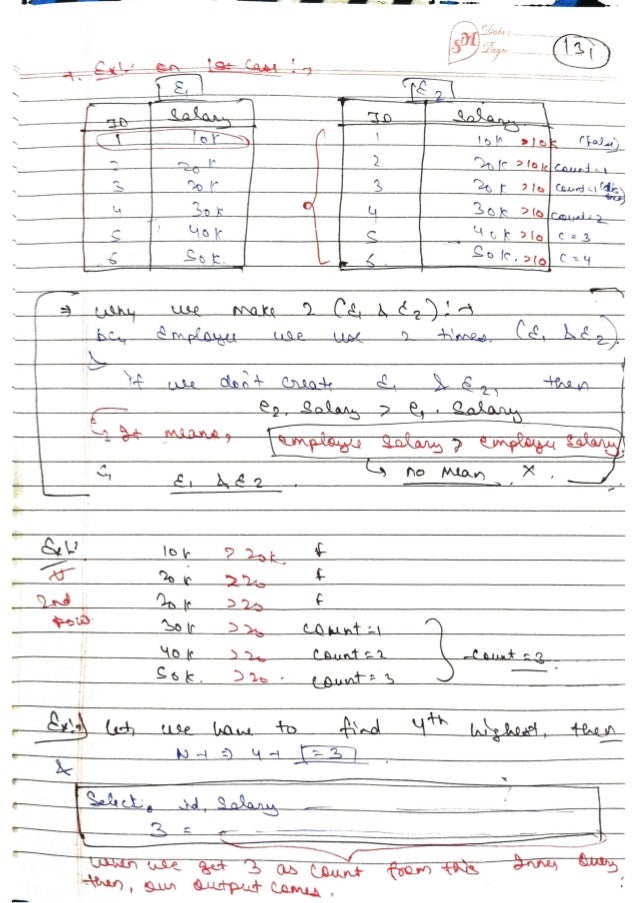 SM Date:
Page:
131
→. Expl: on 1st Case :→
E1
E2
ID Salary
1 10k
2 20k
3 20k
4 30k
5 40k
6 50k.
ID Salary
1 10k >10k (false)
2 20k >10k count=1
3 20k >10 count=1 (distinct)
4 30k >10 count=2
5 40k >10 c=3
6 50k. >10 c=4
⇒ Why we make 2 (E1 & E2) :→
bcz Employee we use 2 times. (E1 & E2).
if we don't create E1 & E2, then
e2. Salary > e1. Salary
It means, employee Salary > employee Salary
↳ no mean. X.
E1 & E2
Expl:
2nd row
10k >20k. f
20k >20 f
20k >20 f
30k >20 count=1
40k >20 count=2
50k. >20. count=3
count=3.
Ex:→ let, we have to find 4th highest, then
N-1 ⇒ 4-1 =3
&
Select. id, Salary
3 =
when we get 3 as count from this Inner Query
then, our output comes.